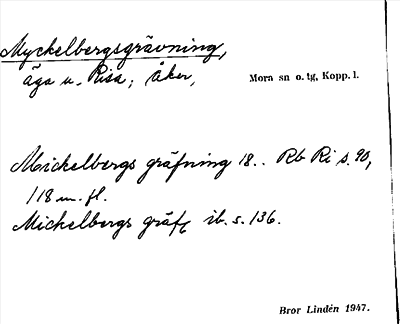 Myckelbergsgrävning,
äga u. Risa; åker,
Mora sn o. tg, Kopp. l.
Mickelbergs gräfning 18.. Rb Ri s. 90,
118 m. fl.
Mickelbergs gräfn ib. s. 136.
Bror Lindén 1947.